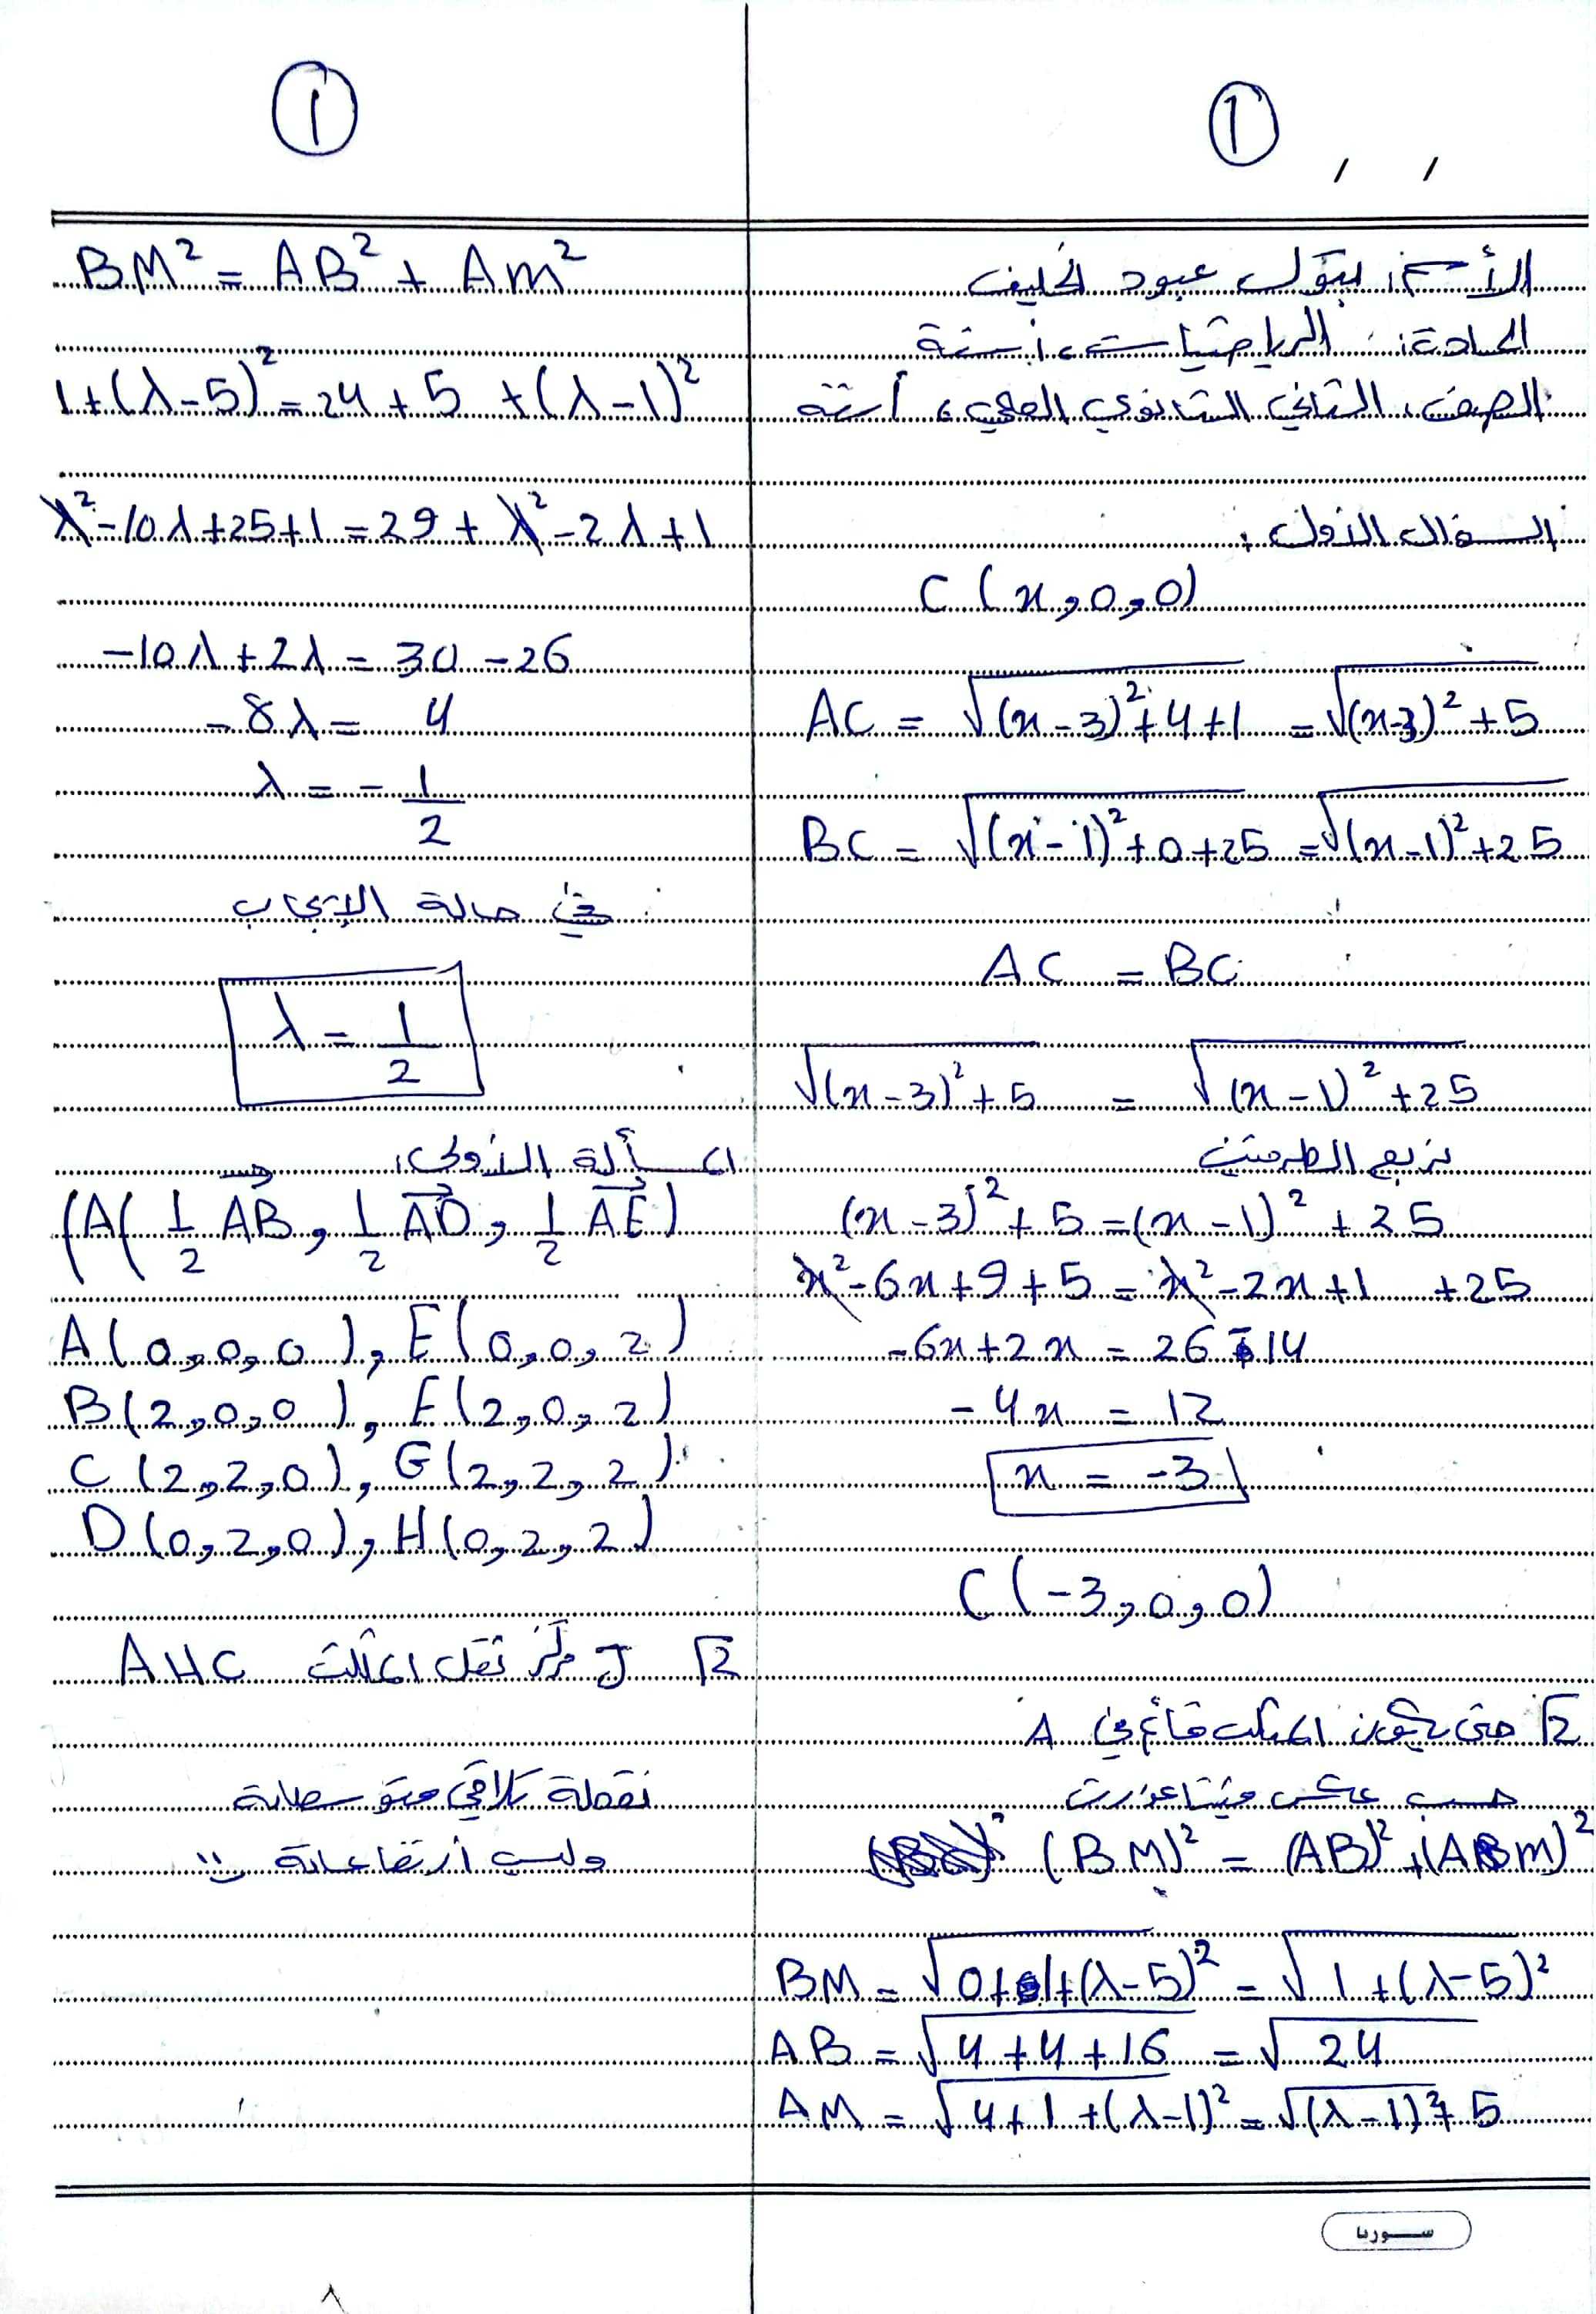 ①
الأسم: بتول عبود الخليف
المادة: الرياضيات، أستة
الصف: الثاني الثانوي العلمي، أستة
السؤال الأول:
C (x, 0, 0)
AC = √(x-3)²+4+1 = √(x-3)²+5
BC = √(x-1)²+0+25 = √(x-1)²+25
AC = BC
√(x-3)²+5 = √(x-1)²+25
نربع الطرفين
(x-3)²+5 = (x-1)²+25
x²-6x+9+5 = x²-2x+1 +25
-6x+2x = 26-14
-4x = 12
x = -3
C(-3, 0, 0)
2 حتى يكون المثلث قائم في A
حسب عكس فيتاغورث
(BM)² = (AB)²+(AM)²
BM = √0+1+(λ-5)² = √1+(λ-5)²
AB = √4+4+16 = √24
AM = √4+1+(λ-1)² = √(λ-1)²+5
سوريا
①
BM² = AB² + AM²
1+(λ-5)² = 24+5 +(λ-1)²
λ²-10λ+25+1 = 29+λ²-2λ+1
-10λ+2λ = 30-26
-8λ = 4
λ = -1/2
في حالة الإيجاب
λ = 1/2
المسألة الأولى:
(A( 1/2 AB, 1/2 AD, 1/2 AE)
A(0,0,0), E(0,0,2)
B(2,0,0), F(2,0,2)
C(2,2,0), G(2,2,2)
D(0,2,0), H(0,2,2)
2 J مركز ثقل المثلث AHC
نقطة تلاقي متوسطاته
وليس أرتفاعاته